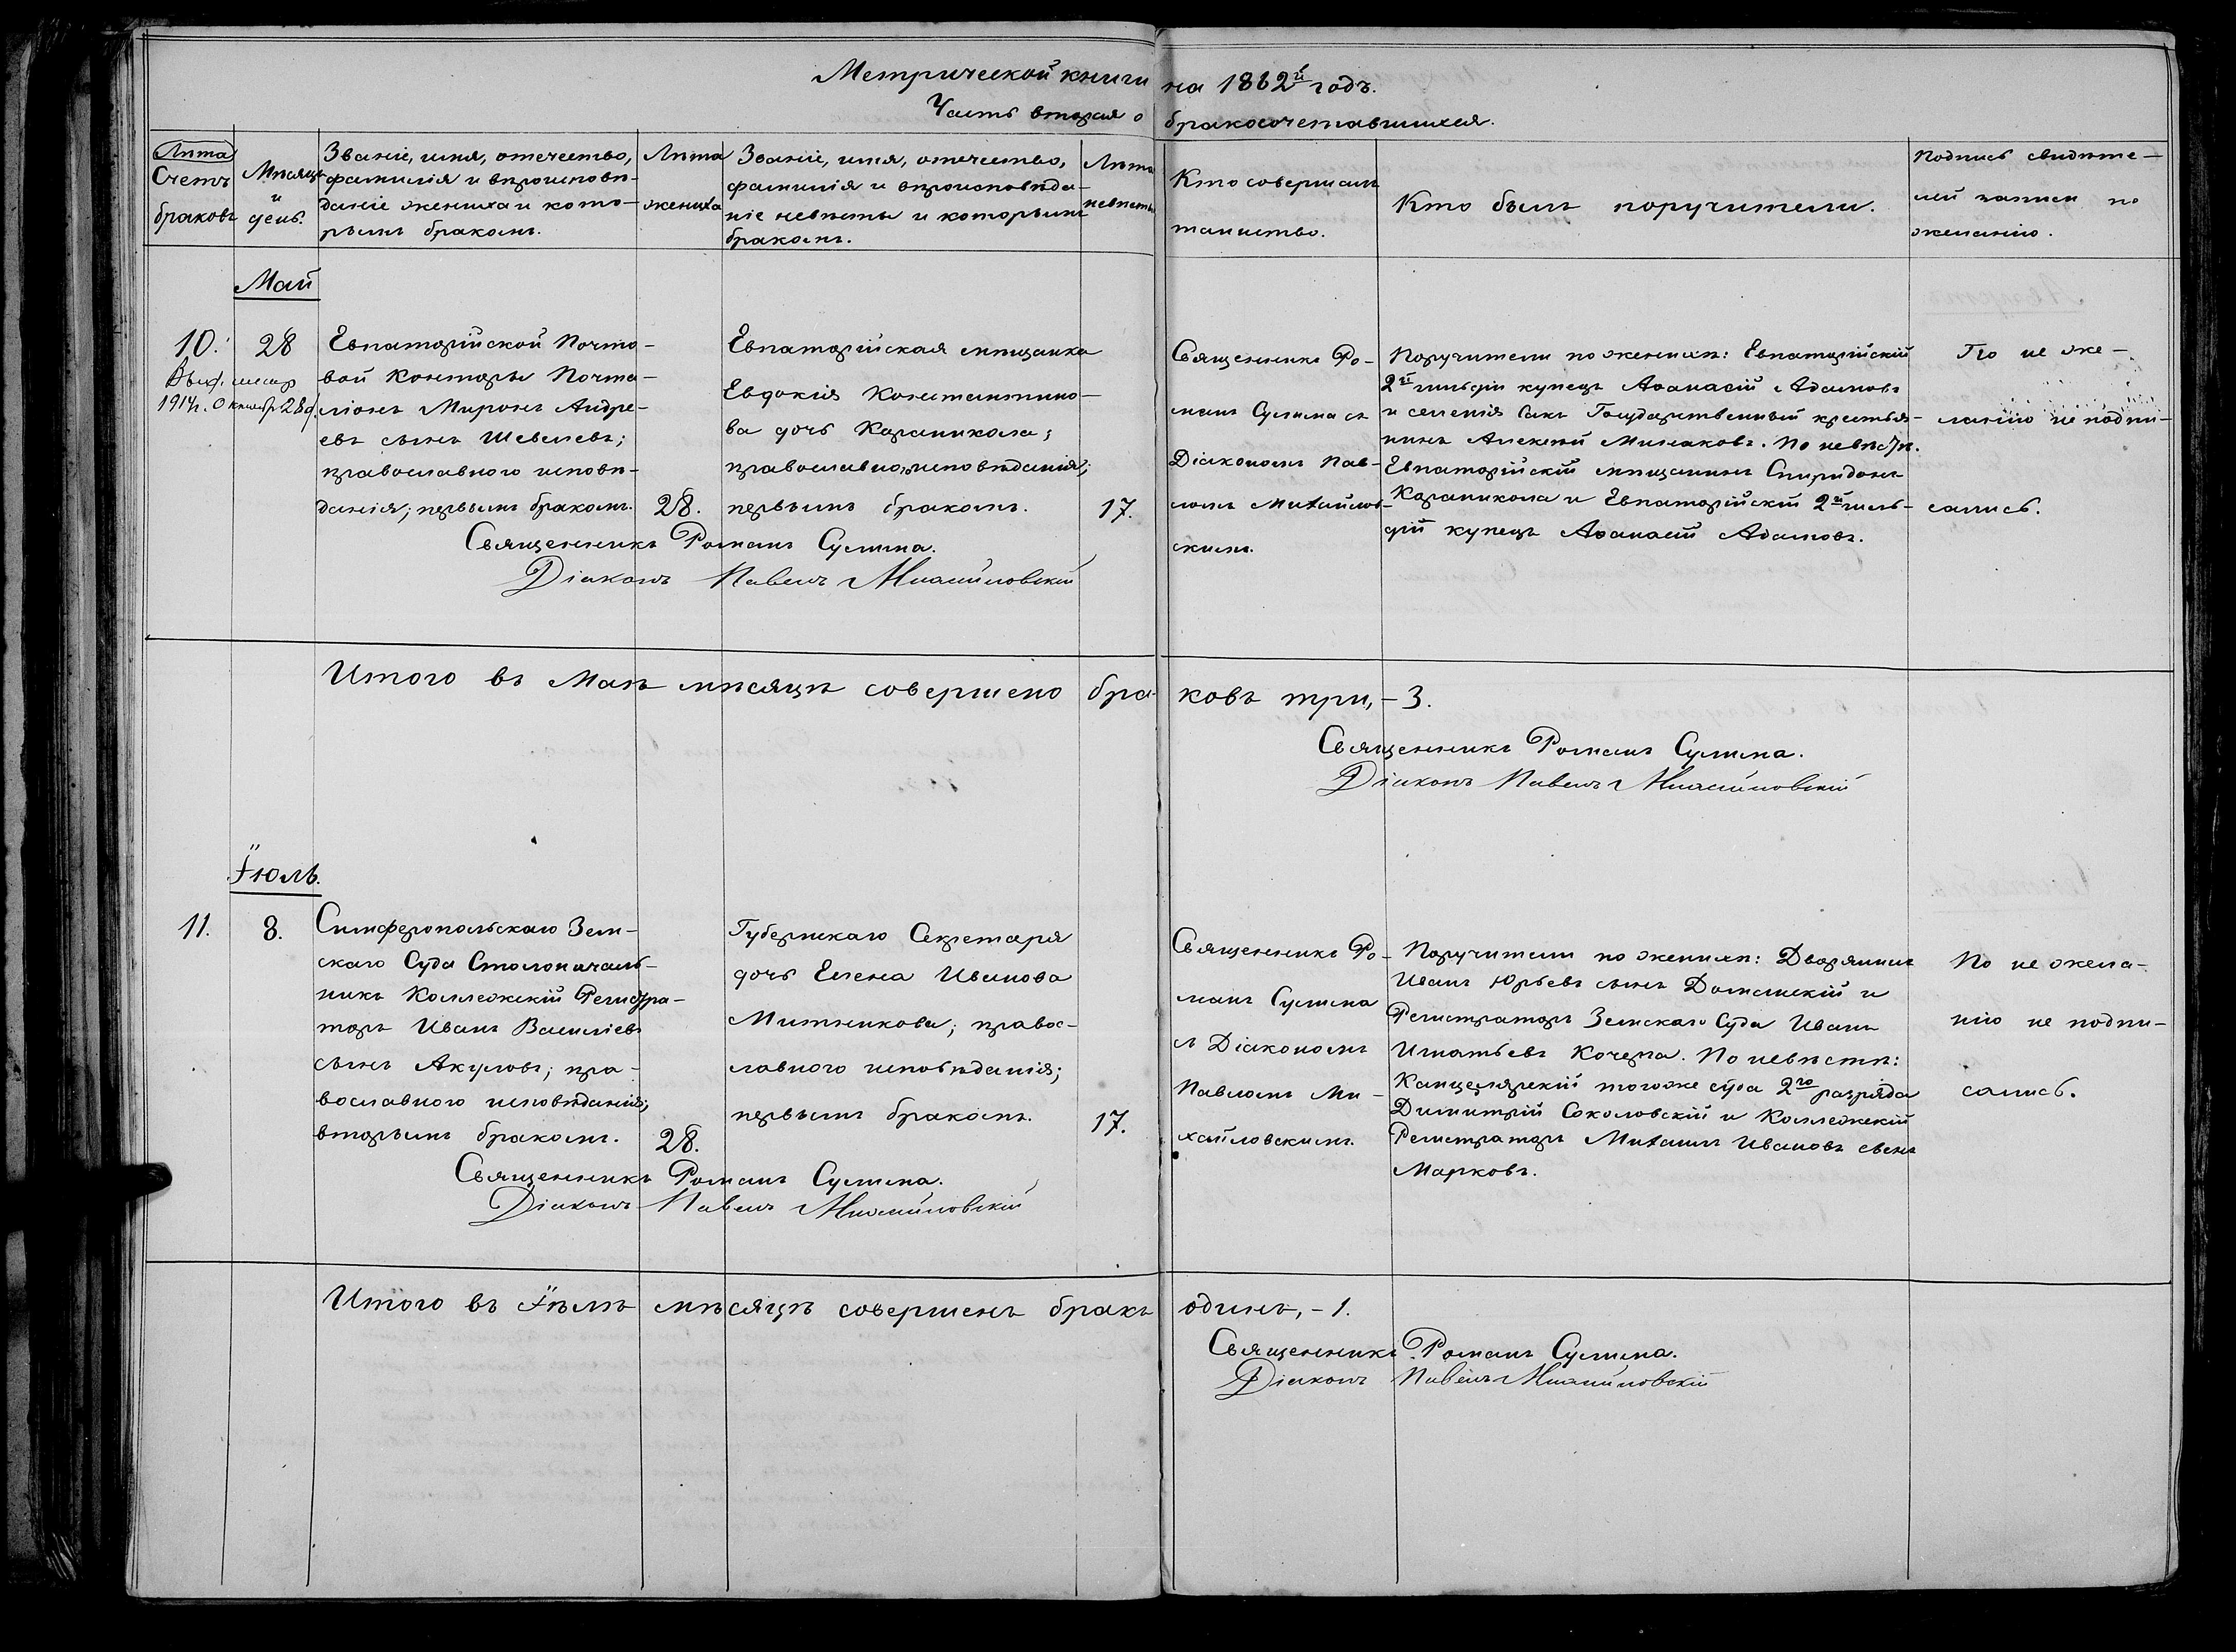 Метрической книги на 1862й годъ.
Часть вторая о бракосочетавшихся.
Лѣта
Счетъ
браковъ
Мѣсяцъ
и
день.
Званіе, имя, отечество,
фамилія и вѣроисповѣ-
даніе жениха и кото-
рымъ бракомъ.
Лѣта
жениха
Званіе, имя, отечество,
фамилія и вѣроисповѣда-
ніе невѣсты и которымъ
бракомъ.
Лѣта
невѣсты
Кто совершалъ
таинство.
Кто были поручители.
Подпись свидѣте-
лей записи по
желанію.
Май
10.
28
1914г. Октябр. 28 д.
Евпаторійской Почто-
вой Конторы Почта-
ліонъ Миронъ Андре-
евъ сынъ Шевелевъ;
православного исповѣ-
данія; первымъ бракомъ.
28.
Евпаторійская мѣщанка
Евдокія Константино-
ва дочь Карапикола;
православного исповѣданія;
первымъ бракомъ.
17.
Священникъ Ро-
манъ Сулима съ
Діакономъ Пав-
ломъ Михайлов-
скимъ.
Поручители по женихѣ: Евпаторійскій
2й гильдіи купецъ Аѳанасій Адамовъ
и селенія Сакъ Государственный крестья-
нинъ Алексѣй Минаковъ. По невѣстѣ.
Евпаторійскій мѣщанинъ Спиридонъ
Карапикола и Евпаторійскій 2й гиль-
дій купецъ Аѳанасій Адамовъ.
По не же-
ланію не подпи-
сались.
Священникъ Романъ Сулима.
Діаконъ Павелъ Михайловскій
Итого въ Маѣ мѣсяцѣ совершено браковъ три, - 3.
Священникъ Романъ Сулима.
Діаконъ Павелъ Михайловскій
Іюль.
11.
8.
Симферопольскаго Зем-
скаго Суда Столоначаль-
никъ Коллежскій Регистра-
торъ Иванъ Васильевъ
сынъ Акуловъ; пра-
вославного исповѣданія;
вторымъ бракомъ.
28.
Губернскаго Секретаря
дочь Елена Иванова
Митникова; правос-
лавного исповѣданія;
первымъ бракомъ.
17.
Священникъ Ро-
манъ Сулима
съ Діакономъ
Павломъ Ми-
хайловскимъ.
Поручители по женихѣ: Дворянинъ
Иванъ Юрьевъ сынъ Доманскій и
Регистраторъ Земскаго Суда Иванъ
Игнатьевъ Кочерга. По невѣстѣ:
Канцелярскій тогоже суда 2го разряда
Димитрій Соколовскій и Коллежскій
Регистраторъ Михаилъ Ивановъ сынъ
Марковъ.
По не жела-
нію не подпи-
сались.
Священникъ Романъ Сулима.
Діаконъ Павелъ Михайловскій
Итого въ Іюлѣ мѣсяцѣ совершенъ бракъ одинъ, - 1.
Священникъ Романъ Сулима.
Діаконъ Павелъ Михайловскій